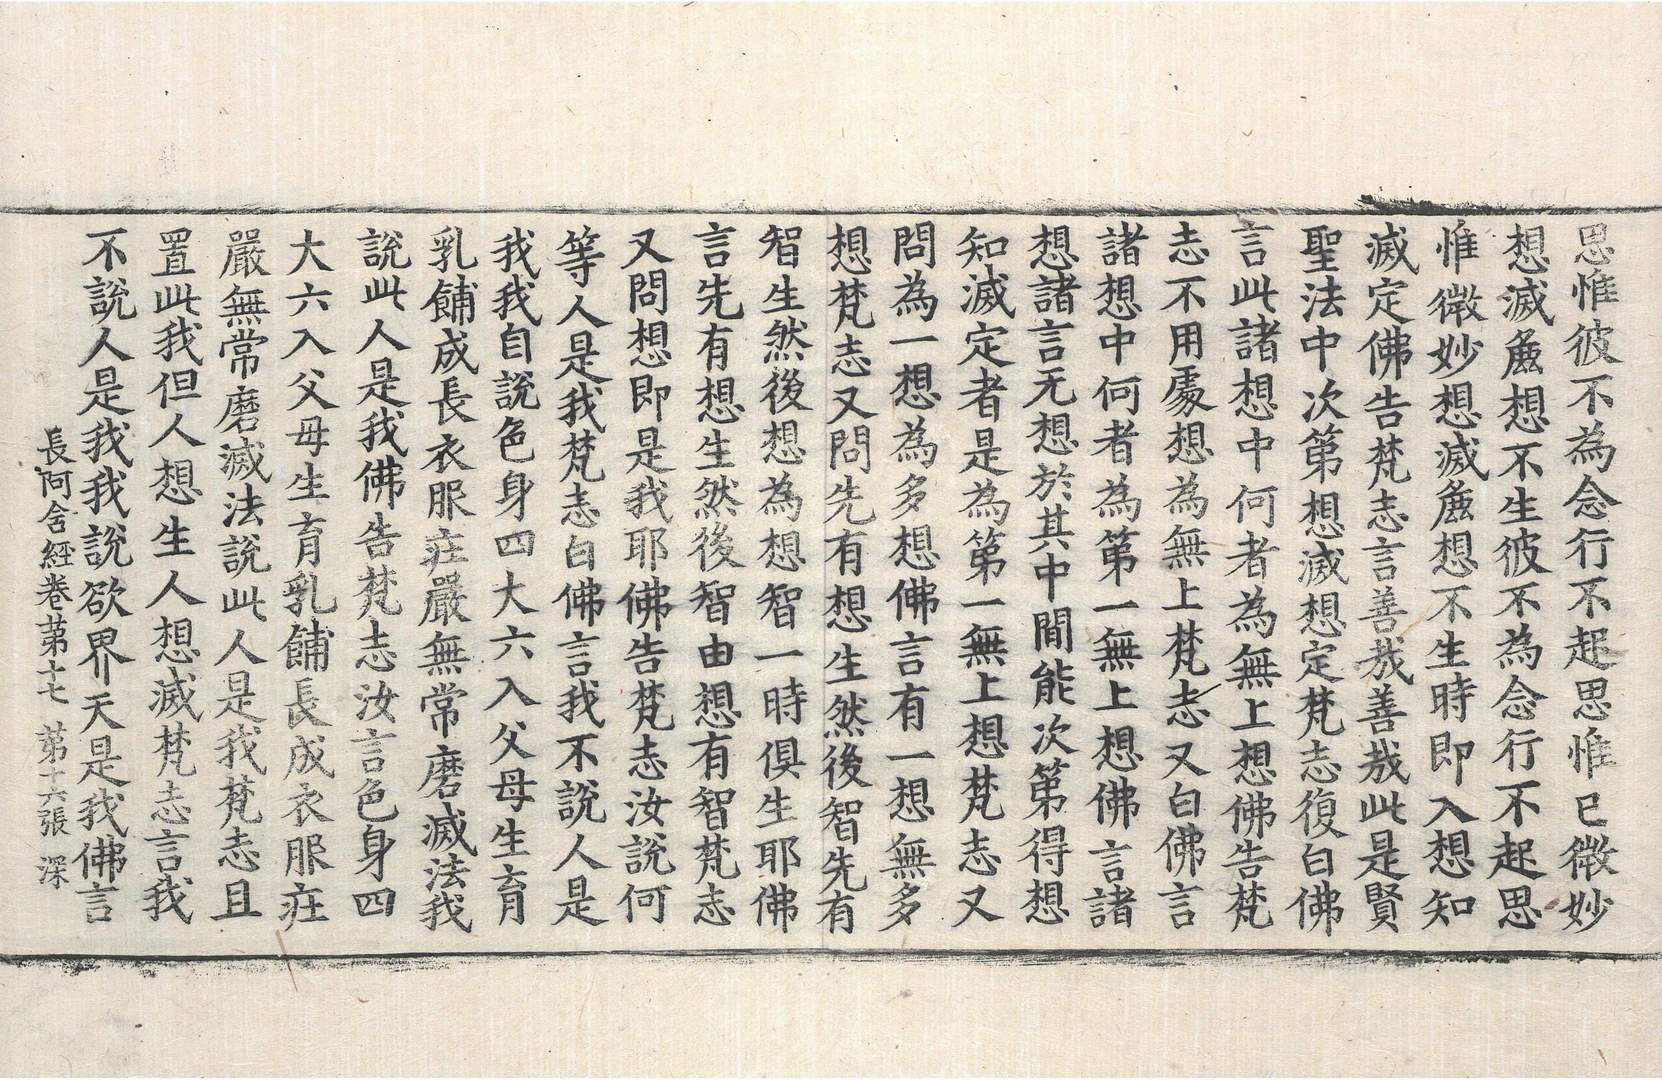 思惟彼不為念行不起思惟已微妙
想滅麁想不生彼不為念行不起思
惟微妙想滅麁想不生時即入想知
滅定佛告梵志言善哉善哉此是賢
聖法中次第想滅想定梵志復白佛
言此諸想中何者為無上想佛告梵
志不用處想為無上梵志又白佛言
諸想中何者為第一無上想佛言諸
想諸言无想於其中間能次第得想
知滅定者是為第一無上想梵志又
問為一想為多想佛言有一想無多
想梵志又問先有想生然後智先有
智生然後想為想智一時俱生耶佛
言先有想生然後智由想有智梵志
又問想即是我耶佛告梵志汝說何
等人是我梵志白佛言我不說人是
我我自說色身四大六入父母生育
乳餔成長衣服庄嚴無常磨滅法我
說此人是我佛告梵志汝言色身四
大六入父母生育乳餔長成衣服庄
嚴無常磨滅法說此人是我梵志且
置此我但人想生人想滅梵志言我
不說人是我我說欲界天是我佛言
長阿含經卷第十七 第十六張 深